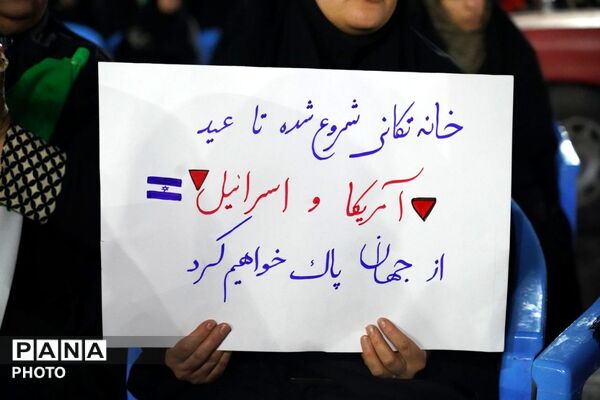 خانه تکانی شروع شده تا عید
آمریکا و اسرائیل =
از جهان پاک خواهیم کرد
PANA
PHOTO